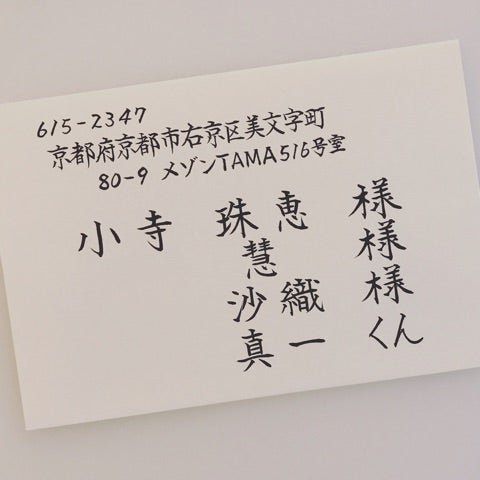 615-2347
京都府京都市右京区美文字町
80-9 メゾンTAMA516号室
小寺 珠恵 様
慧 様
沙織 様
真一 くん